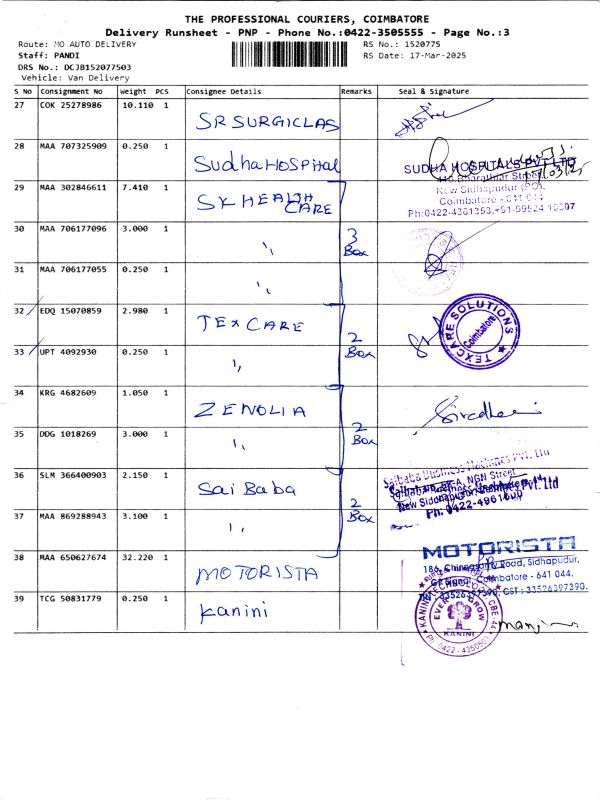 THE PROFESSIONAL COURIERS, COIMBATORE
Delivery Runsheet - PNP - Phone No.:0422-3505555 - Page No.:3
Route: MO AUTO DELIVERY RS No.: 1520775
Staff: PANDI RS Date: 17-Mar-2025
DRS No.: DCJB152077503
Vehicle: Van Delivery
S NO Consignment No Weight PCS Consignee Details Remarks Seal & Signature
27 COK 25278986 10.110 1 SR SURGICLAS
28 MAA 707325909 0.250 1 Sudha HOSPITAL
SUDHA HOSPITALS PVT LTD
Bharathiar Street,
New Sidhapudur (PO),
Coimbatore - 641 044
Ph:0422-4361353,+91-99524 10397
29 MAA 302846611 7.410 1 SK HEALTH CARE
30 MAA 706177096 3.000 1 " 3 Box
31 MAA 706177055 0.250 1 "
32 EDQ 15070859 2.980 1 TEXCARE
TEXCARE SOLUTIONS
Coimbatore
33 UPT 4092930 0.250 1 " 2 Box
34 KRG 4682609 1.050 1 ZENOLIA
35 DDG 1018269 3.000 1 " 2 Box
36 SLM 366400903 2.150 1 Sai Baba
Saibaba Business Machines Pvt. Ltd
NGN Street
New Siddhapudur
Ph: 0422-4961600
37 MAA 869288943 3.100 1 " 2 Box
38 MAA 650627674 32.220 1 MOTORISTA
MOTORISTA
186, Chinnasamy Road, Sidhapudur,
Coimbatore - 641 044.
GST : 33526397390.
39 TCG 50831779 0.250 1 Kanini
KANINI TECHNOLOGY CBE-44
EVER GROW
KANINI
Ph: 0422-4350503